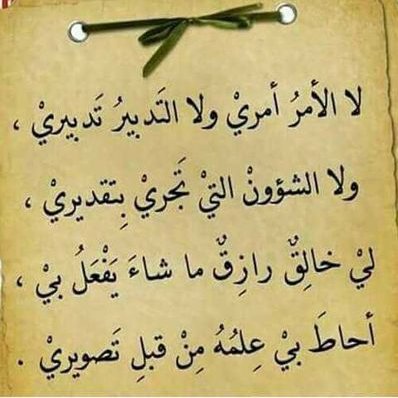 لا الأمرُ أمريْ ولا التَدبيرُ تَدبيريْ ،
ولا الشؤونْ التيْ تَجريْ بِتقديريْ ،
ليْ خالِقٌ رازِقٌ ما شاءَ يَفْعَلُ بيْ ،
أحاطَ بيْ عِلمُهُ مِنْ قبلِ تَصويريْ .